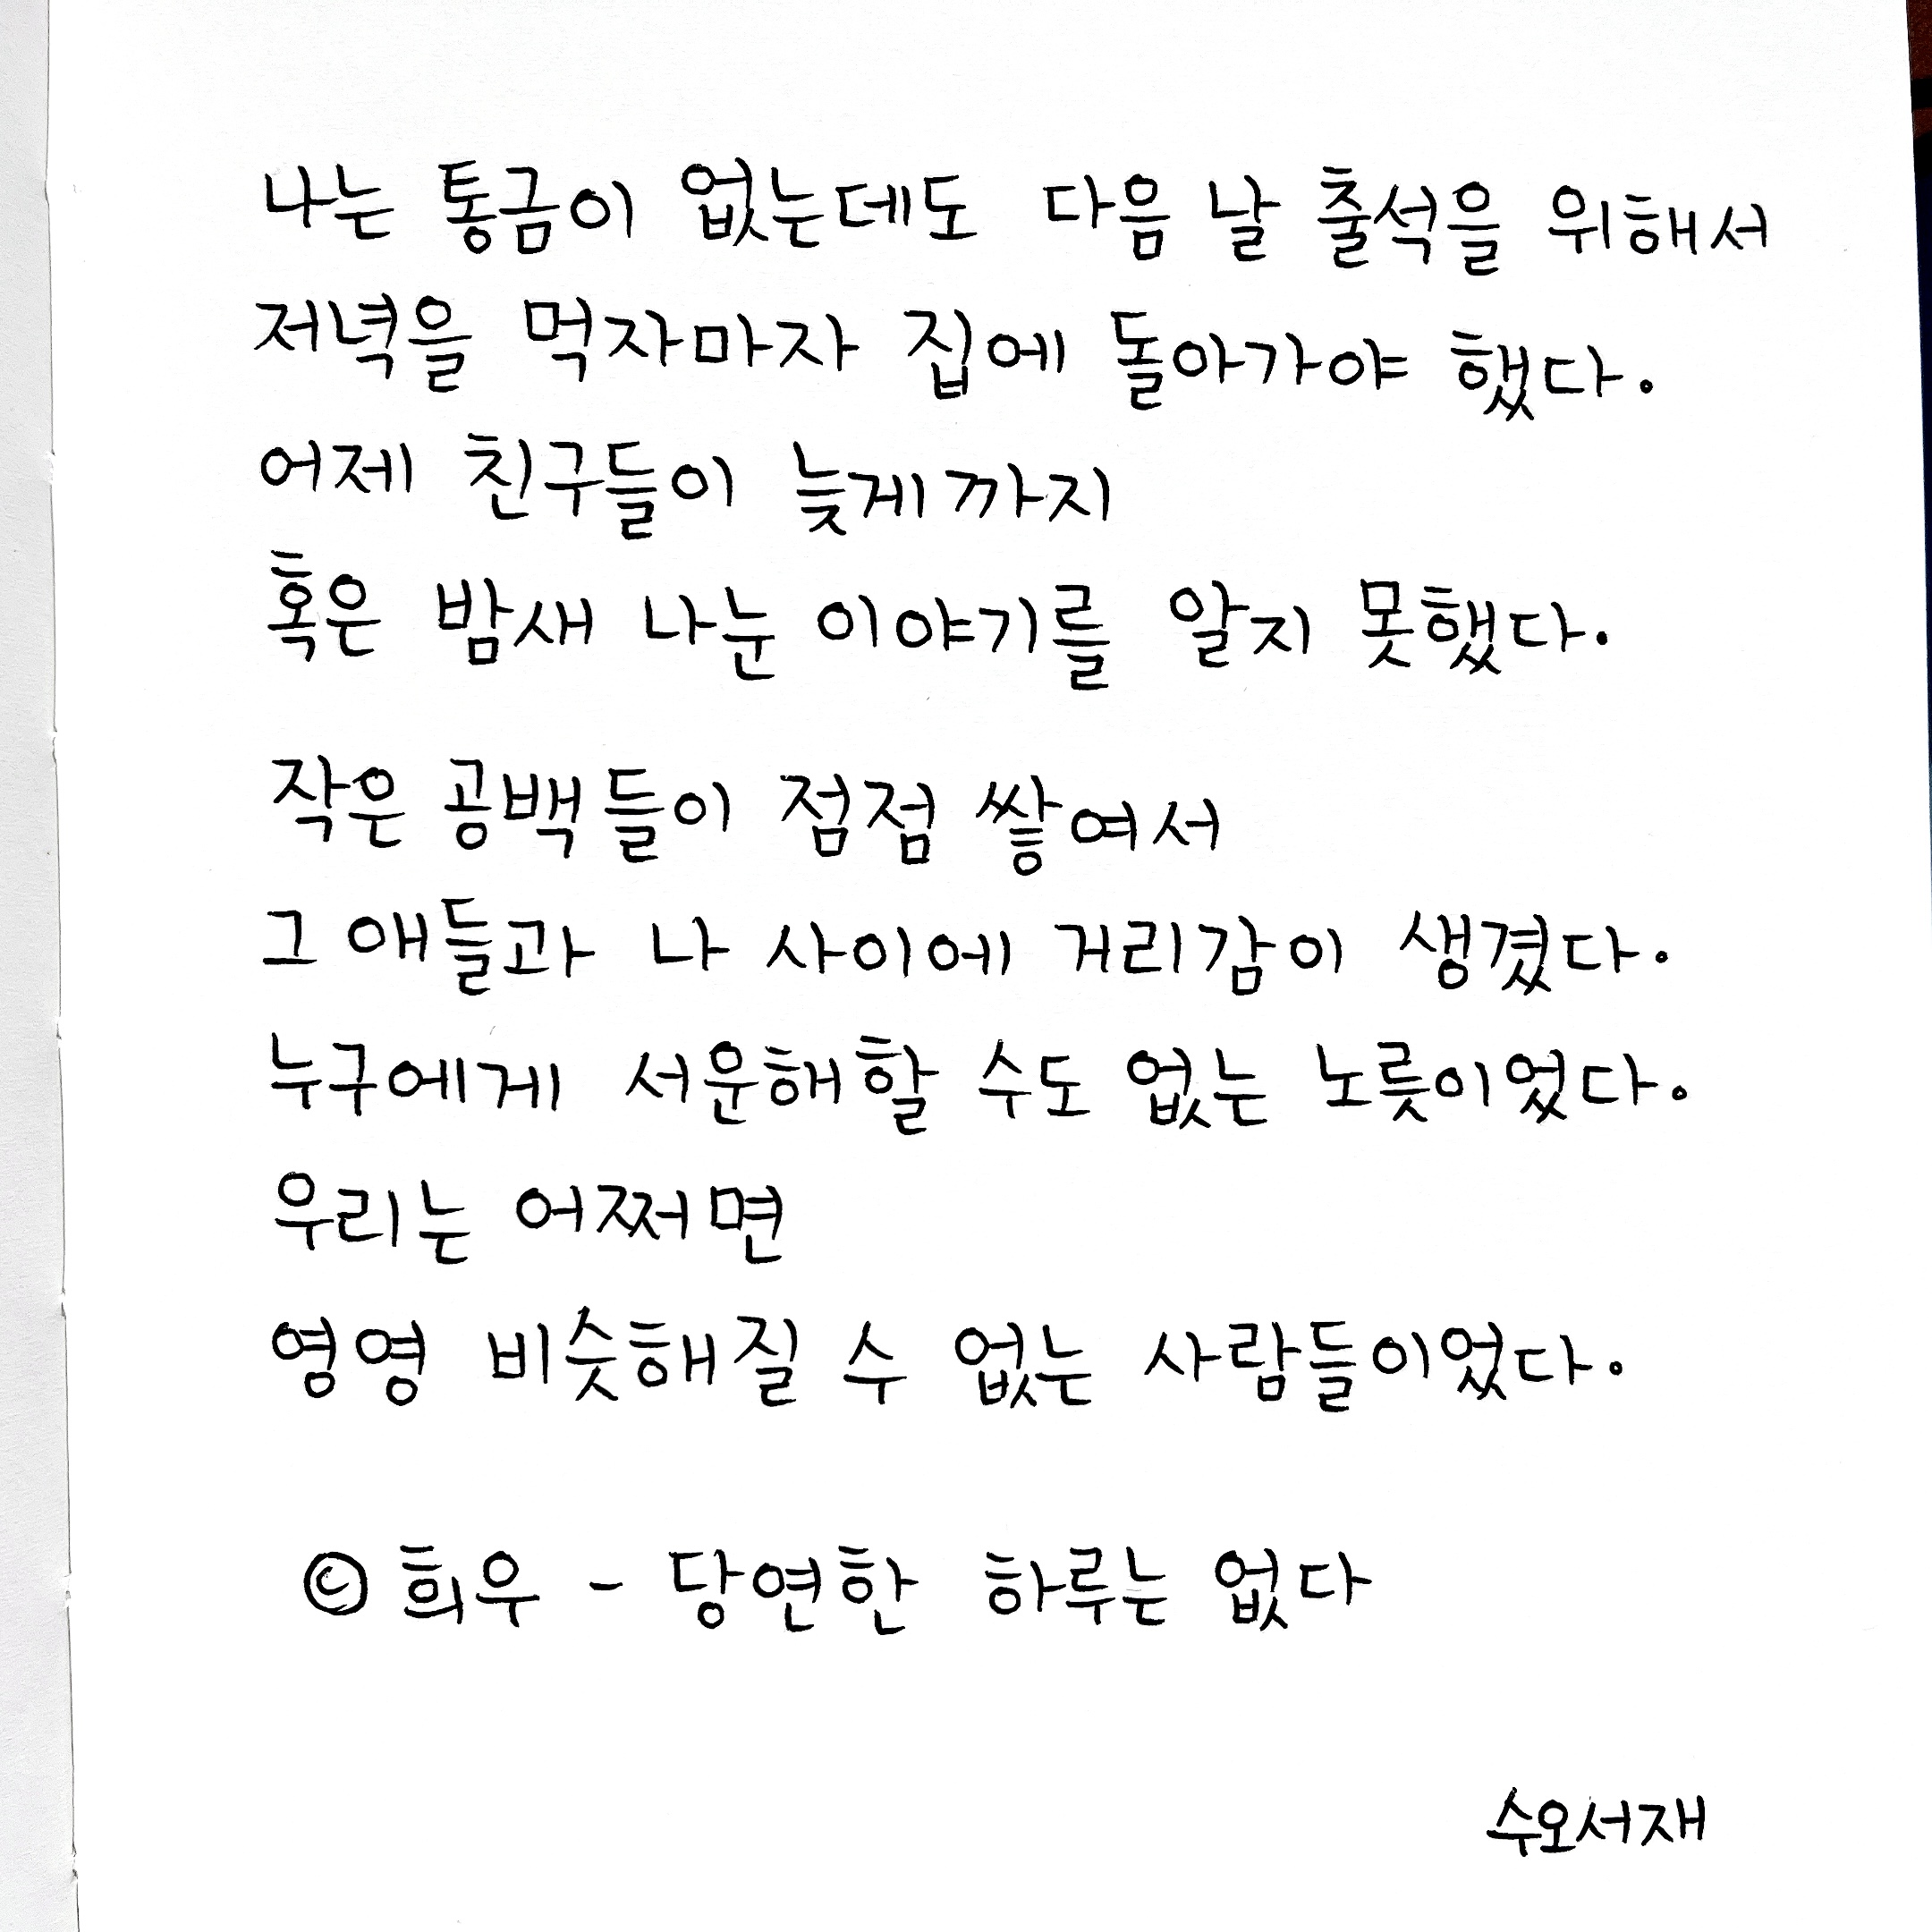 나는 통금이 없는데도 다음 날 출석을 위해서
저녁을 먹자마자 집에 돌아가야 했다.
어제 친구들이 늦게까지
혹은 밤새 나눈 이야기를 알지 못했다.
작은 공백들이 점점 쌓여서
그 애들과 나 사이에 거리감이 생겼다.
누구에게 서운해할 수도 없는 노릇이었다.
우리는 어쩌면
영영 비슷해질 수 없는 사람들이었다.
© 희우 - 당연한 하루는 없다
수오서재